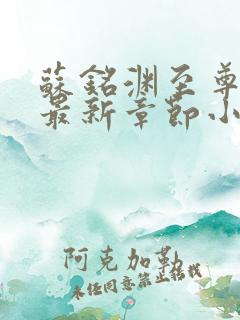 蘇銘渊至尊
最新章節小
阿克加勒
未经同意禁止转载